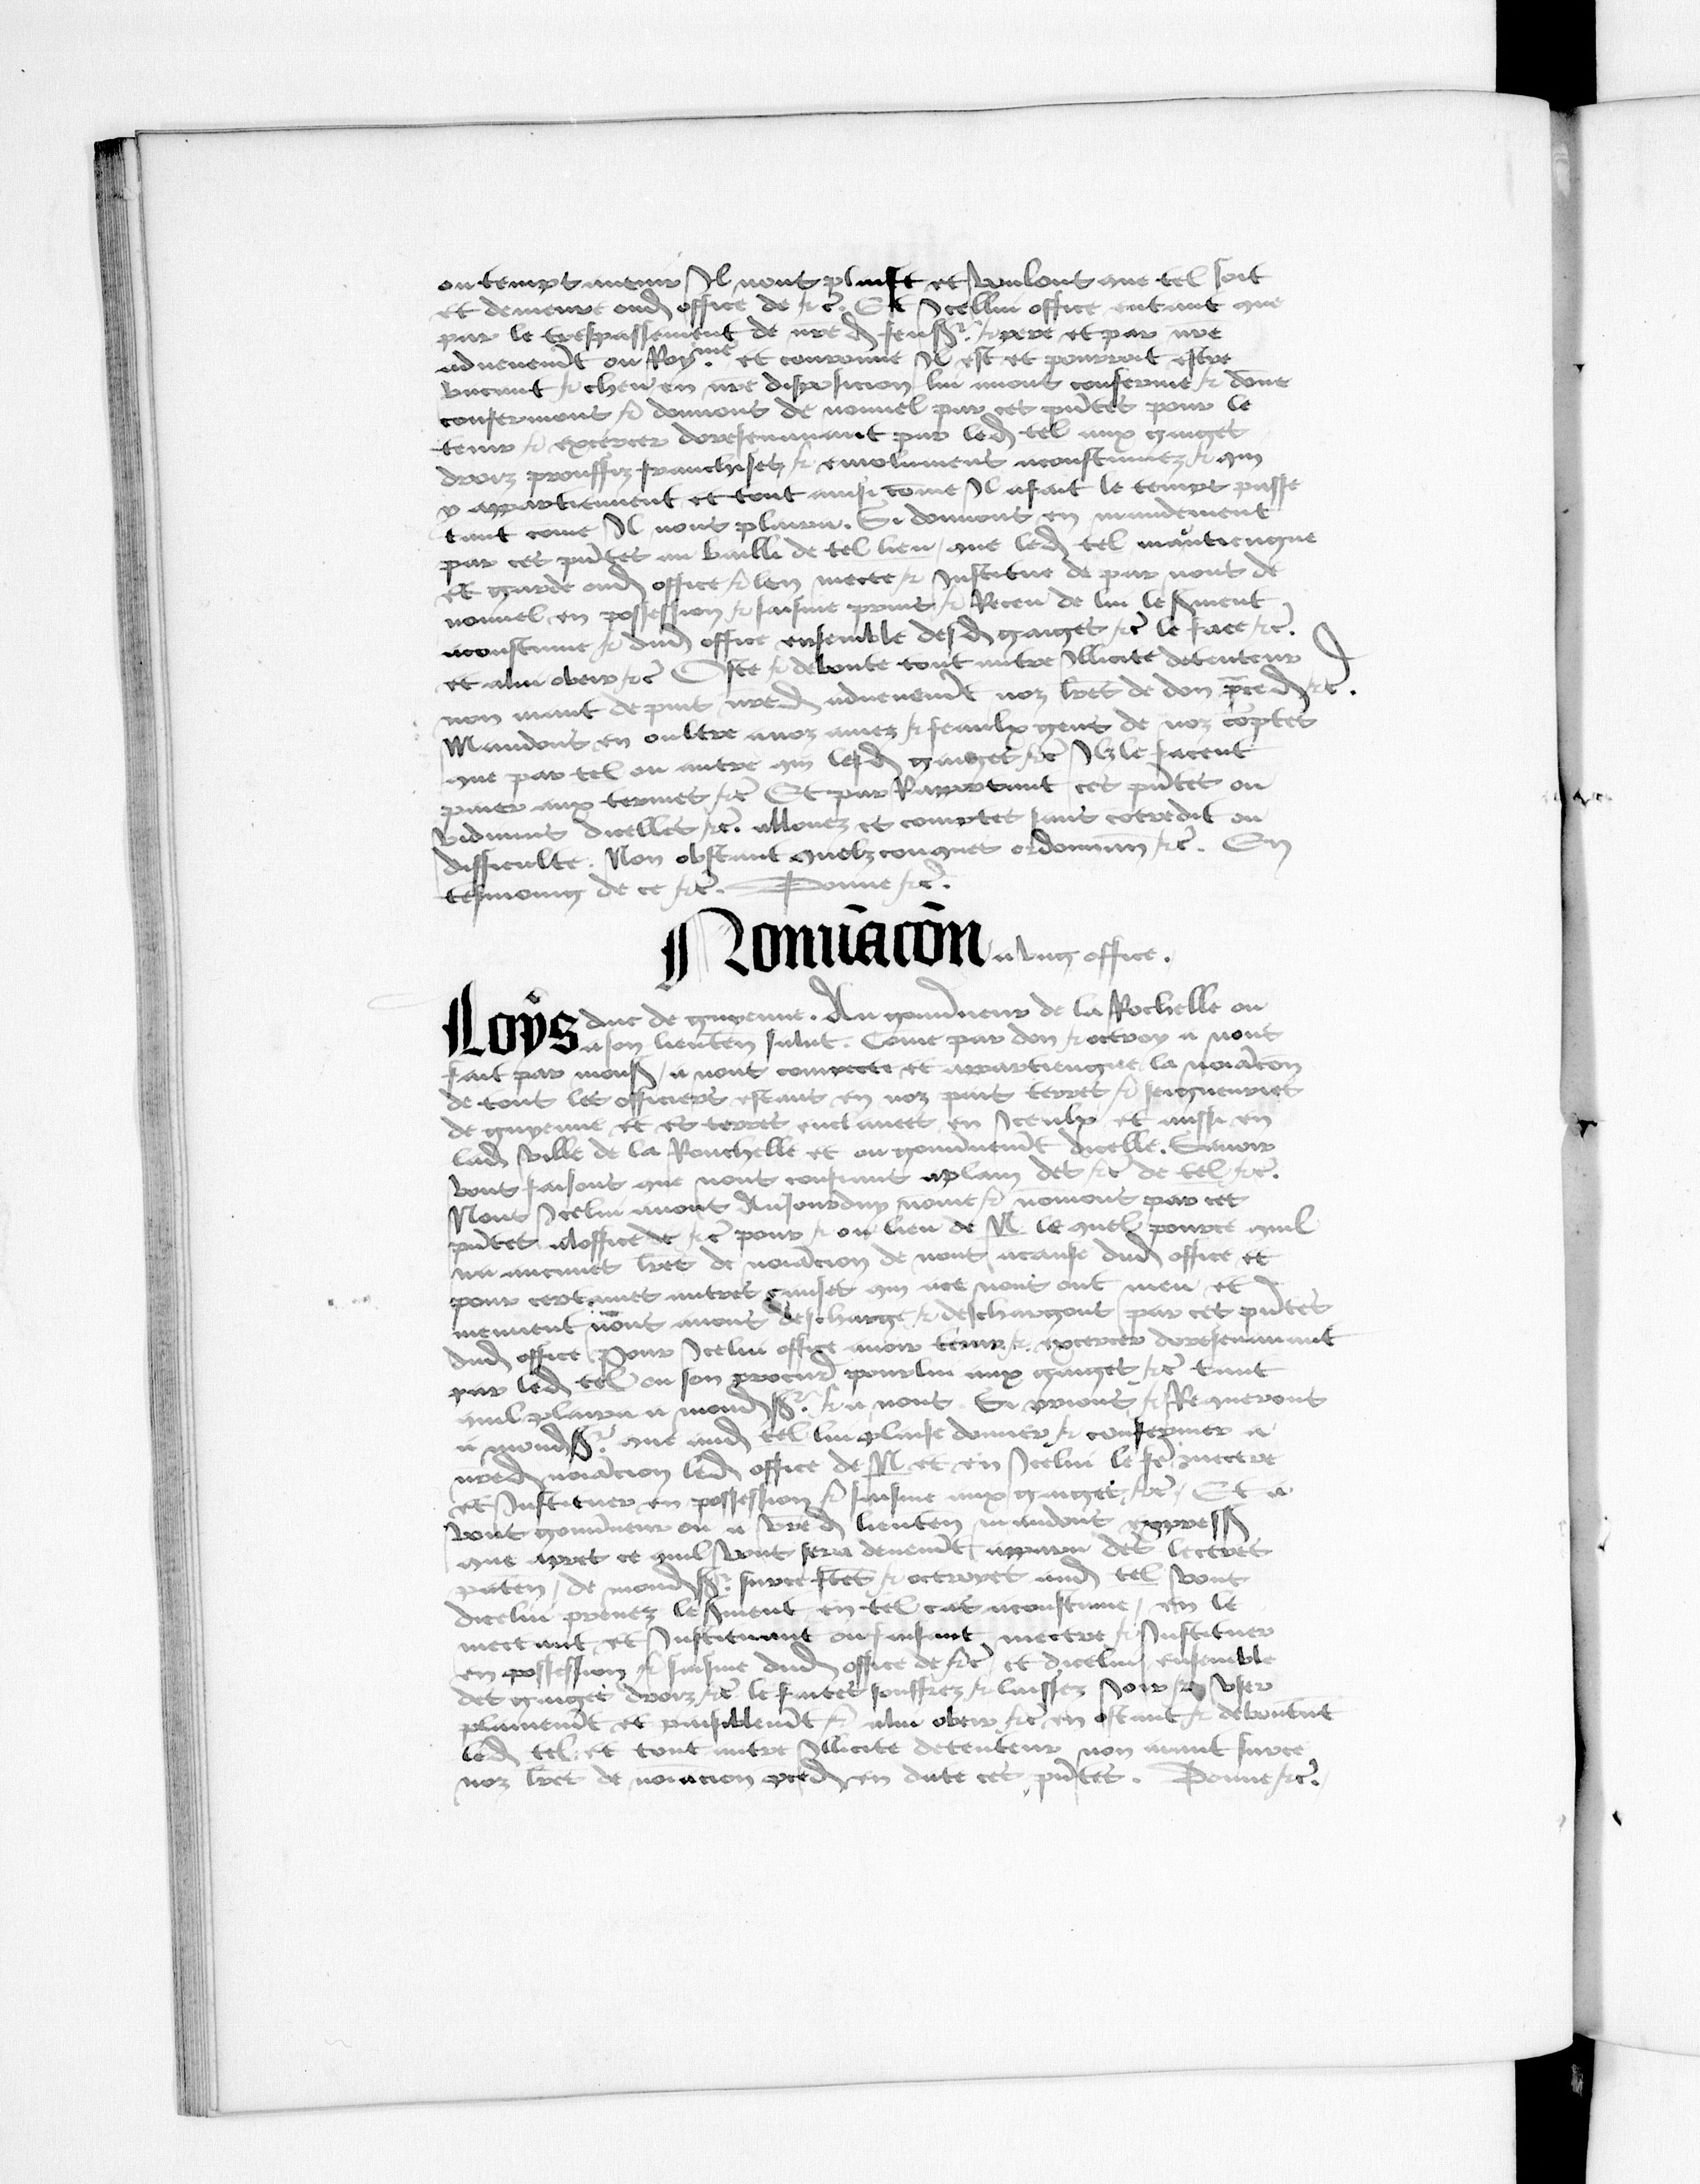 ou temps avenir Il nous plaist et voulons que tel soit
et demeure oud office de &c. Et Icellui office entant que
par le trespassement de nre d feu sr & pere et par nre
advenemt ou Royme et couronne Il est et pourroit estre
vacant & cheu en nre disposicion lui avons conferme & done
confermons & donnons de nouvel par ces pntes pour le
tenir & excercer doresenavant par led tel aux gaiges
droiz prouffiz franchises & emolumens acoustumez & qui
y appartiennent et tout ainsi come Il a fait le temps passe
tant come Il nous plaira. Si donnons en mandement
par ces pntes au bailli de tel lieu que led tel maintiengne
et garde oud office & len mecte & Institue de par nous de
nouvel en possession & saisine prins & Receu de lui le sment
acoustume & dud office ensemble desd gaiges &c le face &c.
et a lui obeir &c Oste & deboute tout autre Illicite detenteur
non aiant depuis nred advenemt noz lres de don preced &c.
Mandons en oultre a noz amez & feaulx gens de noz coptes
que par tel ou autre qui lesd gaiges &c Ilz le facent
paier aux termes &c Et par Rapportant ces pntes ou
vidimus dicelles &c. allouez es comptes sans cotredit ou
difficulte. Non obstant quelzconques ordonnan &c. En
tesmoing de ce &c. Donne &c.
Nominacon a ung office.
Loys duc de guyenne. Au gouvneur de la Rochelle ou
a son lieuten salut. Come par don & octroy a nous
fait par mons a nous compecte et appartiengne la noiacon
de tous les officiers estans en noz pais terres & seigneuries
de guyenne et es terres enclavees en Iceulx et aussi en
lad ville de la Rouchelle et ou gouvnemt dicelle. Savoir
vous faisons que nous confians a plain des &c de tel &c.
Nous Icelui avons Aujourduy nome & nomons par ces
pntes a loffice de &c pour & ou lieu de N le quel pource quil
na aucunes lres de noiacion de nous a cause dud office et
pour certaines autres causes qui a ce nous ont meu et
meuvent nous avons descharge & deschargons par ces pntes
dud office Pour Icelui office avoir tenir & excercer doresenavant
par led tel ou son procur pour lui aux gaiges &c tant
quil plaira a mond sr & a nous Si prions & Requerons
a mond sr que aud tel lui plaise donner & confermer a
nred noiacion led office de N et en Icelui le fe mectre
et Instituer en possession & saisine aux gaiges &c Et a
vous gouvneur ou a vre d lieuten mandons express
que apres ce quil vous sera deuemt apparu des lectres
paten de mond sr sur ce stes & octroyes aud tel vous
dicelui prenez le sment en tel cas acoustume en le
mectant et Instituant ou faisant mectre & Instituer
en possession & saisine dud office de &c et dicelui ensemble
des gaiges droiz &c le faites souffrez & laissez Joir & user
plainemt et paisiblemt & a lui obeir &c en ostant & deboutnt
led tel et tout autre Illicite detenteur non aiant sur ce
noz lres de noiacion preced en date ces pntes. Donne &c.